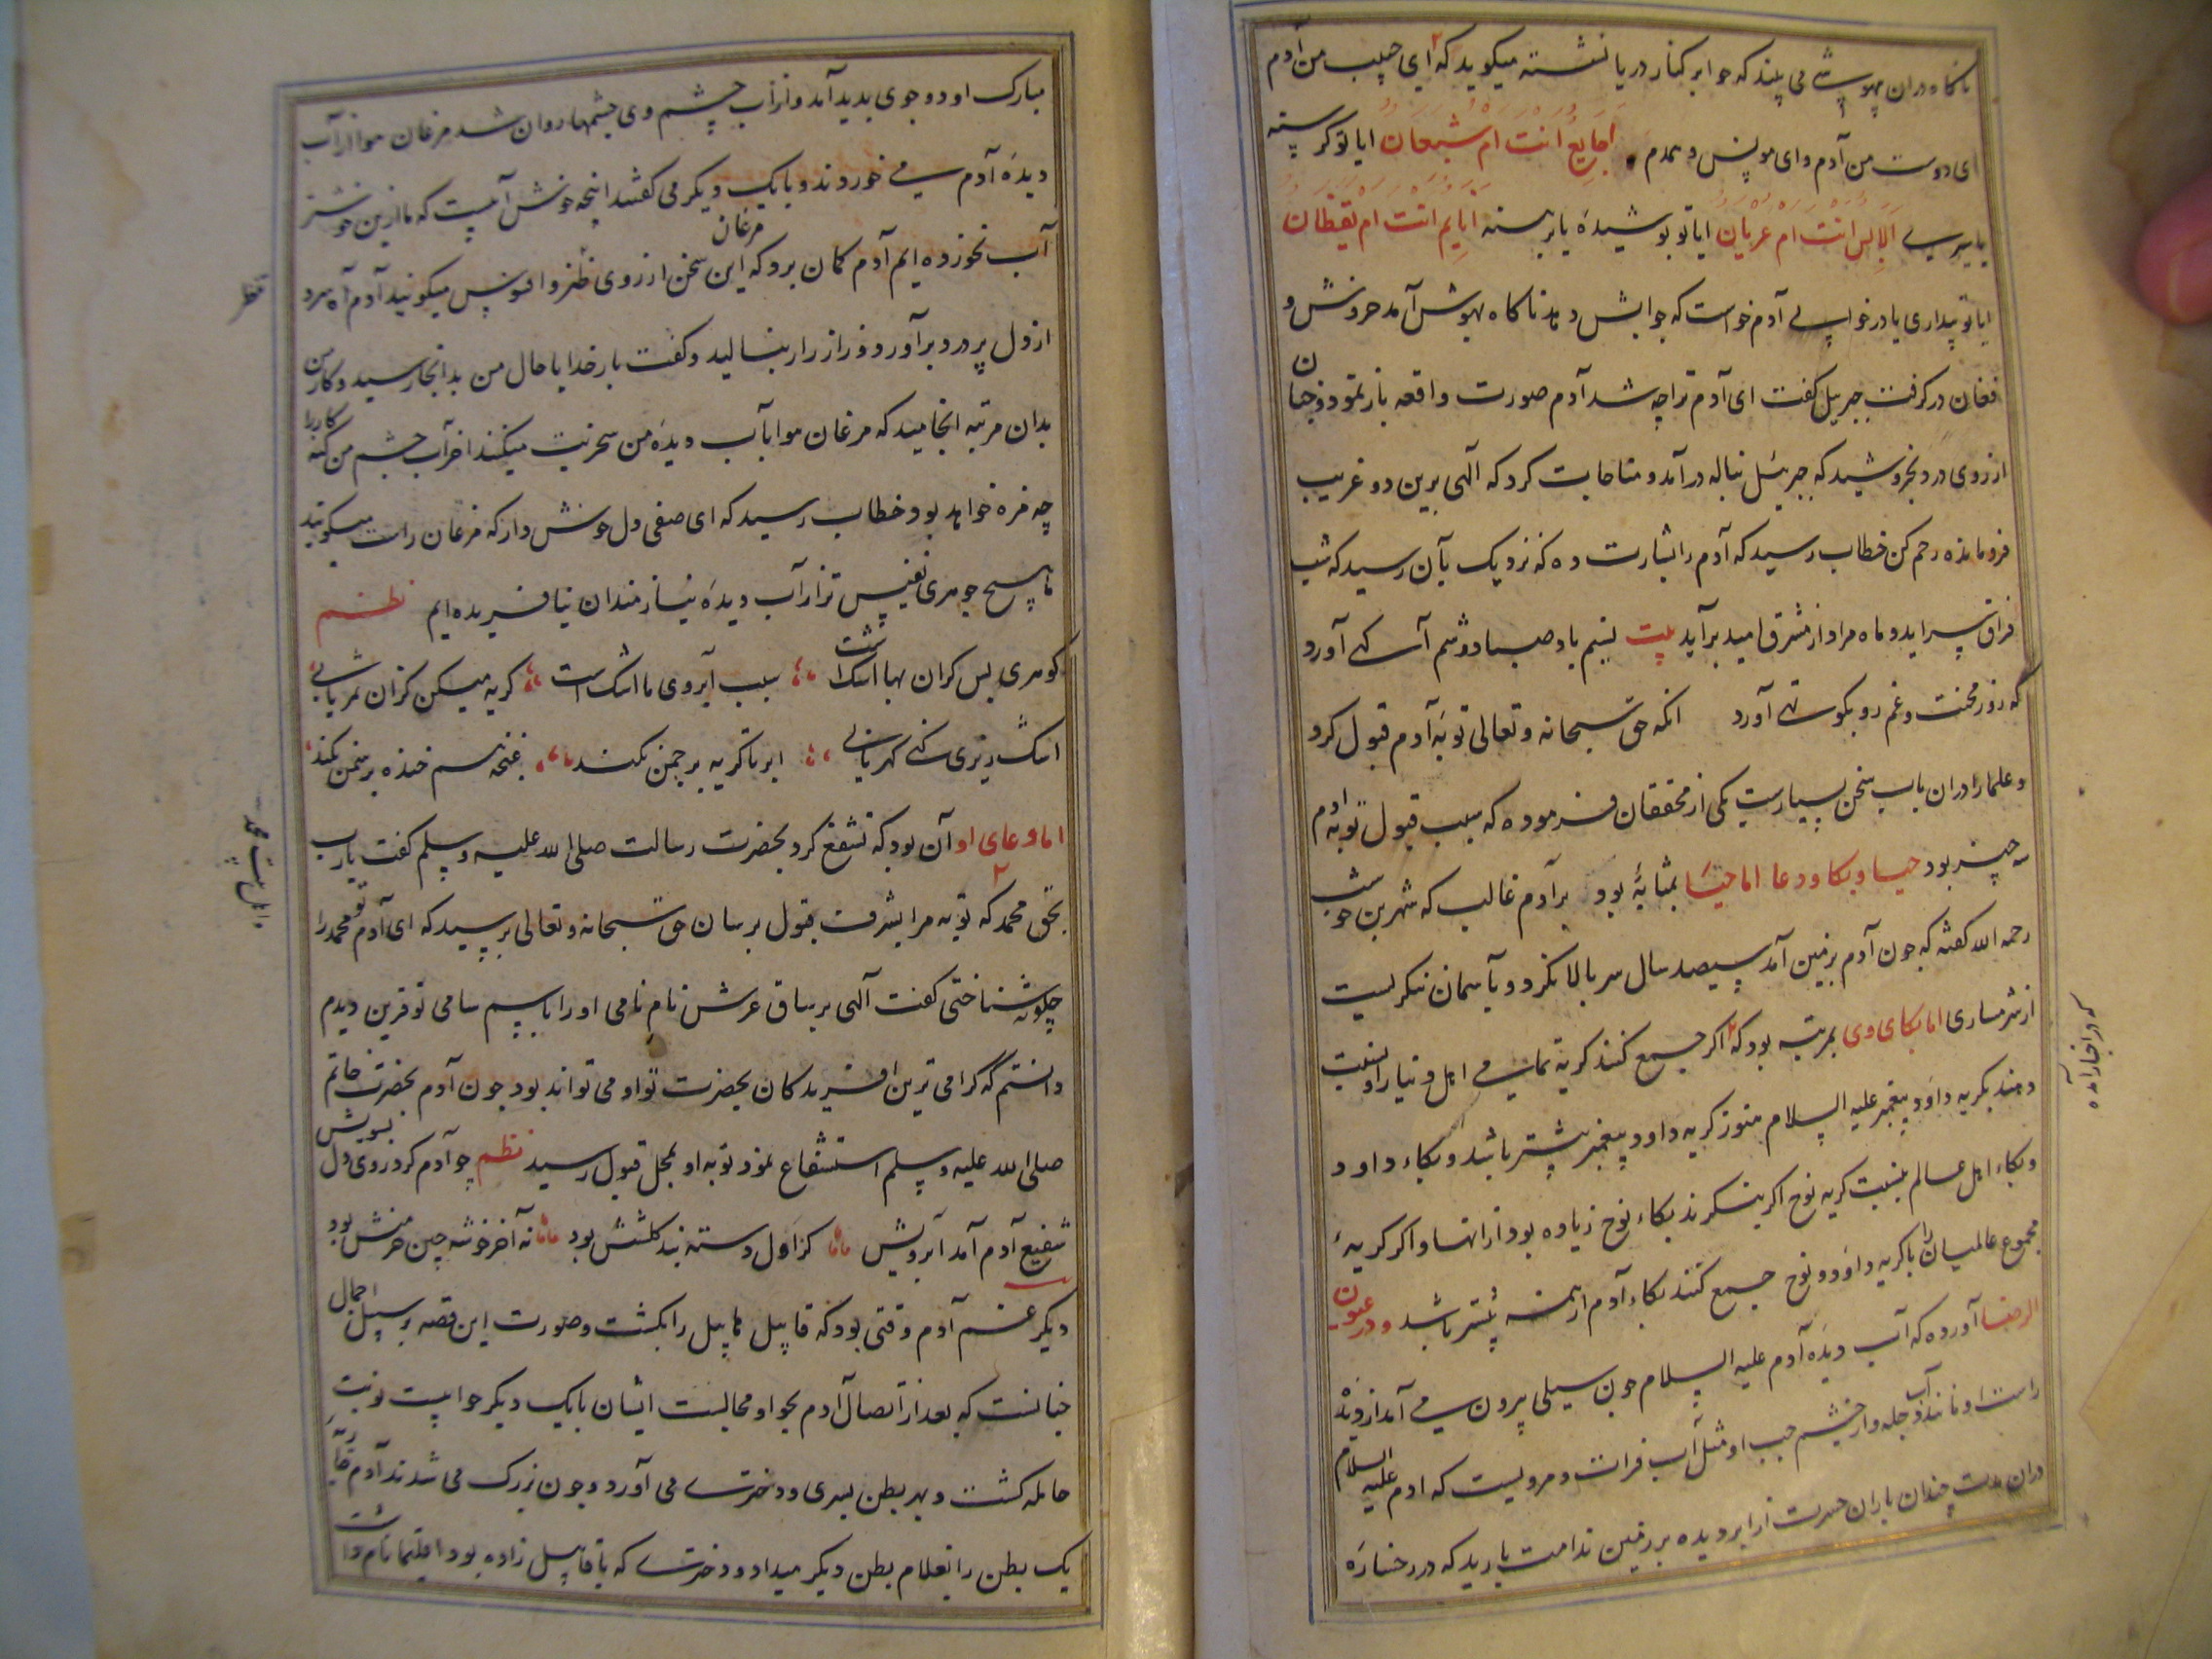 ناکاه دران بیهوشے می بیند که حوا بر کنار دریا نشسته میکوید که ای حبیب من آدم
ای دوست من آدم و ای مونس و همدم اجایع انت ام شبعان ایا تو کرسنه
یا سیری الابس انت ام عریان ایا تو پوشیدهٔ یا برهنه انایم انت ام یقظان
ایا تو بیداری یا در خوابی آدم خواست که جوابش دهد ناکاه بهوش آمد خروش و
فغان در کرفت جبریل کفت ای آدم ترا چه شد آدم صورت واقعه باز نمود و چنان
از روی درد بخروشید که جبرئیل بناله درآمد و مناجات کرد که آلهی برین دو غریب
فرومانده رحم کن خطاب رسید که آدم را بشارت ده که نزدیک بآن رسید که شب
فراق بسر اید و ماه مراد از مشرق امید برآید بیت نسیم باد صبا دوشم آکهی آورد
که روز محنت و غم رو بکوتهی آورد انکه حق سبحانه و تعالی توبهٔ آدم قبول کرد
و علما را دران باب سخن بسیارست یکی از محققان فرموده که سبب قبول توبه ادم
سه چیز بود حیا و بکا و دعا اما حیا بمثابهٔ بود بر آدم غالب که شهر بن حوشب
رحمه الله کفته که چون آدم بزمین آمد سیصد سال سر بالا نکرد و بآسمان ننکریست
از شرمساری اما بکای وی بمرتبه بود که اکر جمع کنند کریهٔ تمامی اهل دنیا را و نسبت
دهند بکریه داود پیغمبر علیه السلام هنوز کریه داود پیغمبر بیشتر باشد و بکاء داود
و بکاء اهل عالم بنسبت کریه نوح اکر بنکرند بکاء نوح زیاده بود از انها و اکر کریهٔ
مجموع عالمیان را با کریه داود و نوح جمع کنند بکاء آدم از همه بیشتر باشد و در عیون
الرضا آورده که آب دیدهٔ آدم علیه السلام چون سیلی بیرون می آمد از دیدهٔ
راست او مانند آب دجله و از چشم چپ او مثل آب فرات و مرویست که ادم علیه السلام
دران مدت چندان باران حسرت از ابر دیده بر زمین ندامت بارید که در رخسارهٔ
که در اخبار آمده
مبارک او دو جوی بدید آمد و از آب چشم وی چشمها روان شد مرغان هوا از آب
دیدهٔ آدم می خوردند و با یک دیکر می کفتند اینچه خوش آبیست که ما ازین خوشتر
آب نخورده ایم آدم کمان برد که این سخن مرغان از روی طنز و افسوس میکویند آدم آه سرد
از دل پر درد برآورد و زار زار بنالید و کفت بار خدایا حال من بدانجا رسید و کار من
بدان مرتبه انجامید که مرغان هوا بآب دیدهٔ من سخریت میکنند اخر آب چشم من کنه کار را
چه مزه خواهد بود خطاب رسید که ای صفی دل خوش دار که مرغان راست میکویند
ما هیچ جوهری نفیس تر از آب دیدهٔ نیازمندان نیافریده ایم نظم
کوهری بس کران بها اشک است سبب آبروی ما اشک است کریه میکن کزان ثمر یابی
اشک ریزی کنی کهر یابی ابر تا کریه بر چمن نکند غنچه هم خنده بر سمن نکند
اما دعای او آن بود که تشفع کرد بحضرت رسالت صلی الله علیه و سلم کفت یا رب
بحق محمد که توبه مرا بشرف قبول برسان حق سبحانه و تعالی پرسید که ای آدم تو محمد را
چکونه شناختی کفت آلهی بر ساق عرش نام نامی او را با اسم سامی تو قرین دیدم
دانستم که کرامی ترین افریدکان بحضرت تو او می تواند بود چون آدم بحضرت خاتم
صلی الله علیه و سلم استشفاع نمود توبه او بمحل قبول رسید نظم چو آدم کرد روی دل بسویش
شفیع آدم آمد آبرویش کز اول دسته بند کلشنش بود نه آخر خوشه چین خرمنش بود
دیکر غم آدم وقتی بود که قابیل هابیل را بکشت و صورت این قصه بر سبیل اجمال
چنانست که بعد از اتصال آدم بحوا و مجالست ایشان با یک دیکر حوا بیست نوبت
حامله کشت و بهر بطن پسری و دختری می آورد و چون بزرک می شدند آدم
یک بطن را بغلام بطن دیکر میداد و دختری که با قابیل زاده بود اقلیما نام